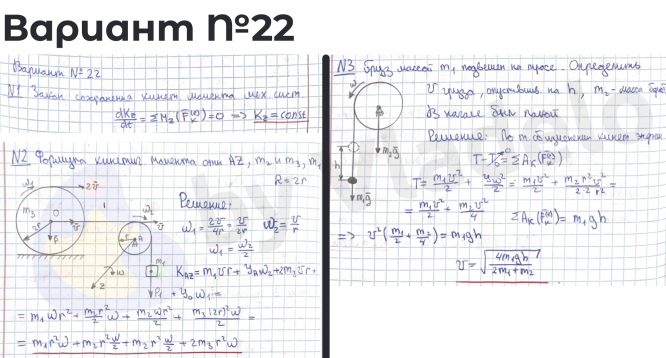 Вариант №22
Вариант №22
N1 Закон сохранения кинет момента мех. сист.
dKz/dt = ΣMz(Fₖ⁽ᵉ⁾) = 0 => Kz = const
N2 Формула кинетич момента отн AZ, m₂ и m₃, m₁
R = 2r
Решение:
ω₁ = 2v/4r = v/2r ω₂ = v/r
ω₁ = ω₂/2
K_AZ = m₁vr + J_Aω₂ + 2m₃vr +
+ J₀ω₁ =
= m₁ωr² + m₂r²/2 ω + m₂ωr²/2 + m₃(2r)²ω/2 =
= m₁r²ω + m₂r²ω/2 + m₂r²ω/2 + 2m₃r²ω
m₃
O
2v
v
ω₂
v
r
A
m₁
ω
Z
P₁
N3 Груз массой m₁ подвешен на тросе. Определить
v груза, опустившись на h, m₂ - масса
В начале был покой
Решение: По т. об изменении кинет энергии
T - T₀ = ΣA(Fₖ⁽ᵉ⁾)
T = m₁v²/2 + = m₁v²/2 + m₂r²v²/2·2r² =
= m₁v²/2 + m₂v²/4 ΣAₖ(Fₖ⁽ᵉ⁾) = m₁gh
=> v²(m₁/2 + m₂/4) = m₁gh
v = √(4m₁gh/2m₁+m₂)
m₂g
h
m₁g